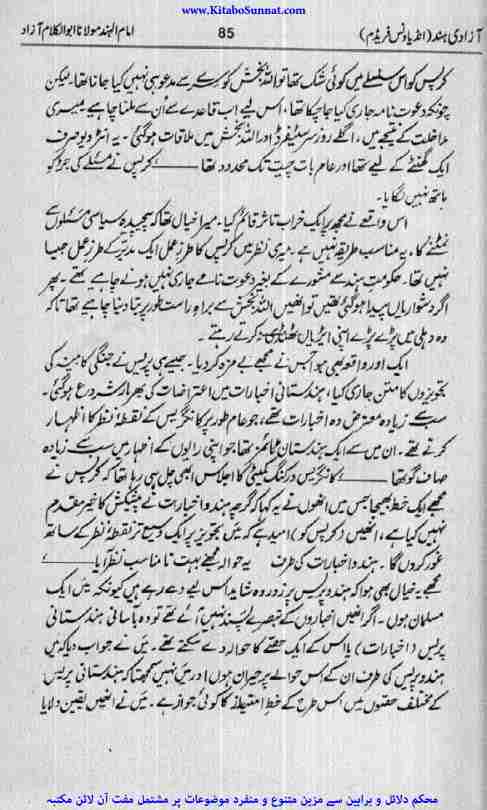 www.KitaboSunnat.com
آزادی ہند (انڈیا ونس فریڈم) 85 امام الہند مولانا ابوالکلام آزاد
کرپس کو اس سلسلے میں کوئی شک تھا تو اللہ بخش کو سرے سے مدعو ہی نہیں کیا جانا تھا۔ لیکن
چونکہ دعوت نامہ جاری کیا جا چکا تھا، اس لیے اب قاعدے سے ان سے ملنا چاہیے میری
مداخلت کے نتیجے میں، اگلے روز سر سٹیفرڈ اور اللہ بخش میں ملاقات ہو گئی۔ یہ انٹرویو صرف
ایک گھنٹے کے لیے تھا اور عام بات چیت تک محدود تھا ـــــ کرپس نے مسئلے کی جڑ کو
ہاتھ نہیں لگایا۔
اس واقعے نے مجھ پر ایک خراب تاثر قائم کیا۔ میرا خیال تھا کہ پیچیدہ سیاسی مسئلوں سے
نمٹنے کا، یہ مناسب طریقہ نہیں ہے۔ میری نظر میں کرپس کا طرز عمل ایک مدبر کے طرز عمل جیسا
نہیں تھا۔ حکومت ہند سے مشورے کے بغیر دعوت نامے جاری نہیں ہونے چاہیے تھے۔ پھر
اگر دشواریاں پیدا ہو گئی تھیں تو انھیں اللہ بخش سے براہ راست طور پر بتا دینا چاہیے تھا تاکہ
وہ دہلی میں پڑے پڑے اپنی ایڑیاں ٹھنڈی نہ کرتے رہتے۔
ایک اور واقعہ بھی ہوا جس نے مجھے بے مزہ کر دیا۔ جیسے ہی پریس نے جنگی کابینہ کی
تجویزوں کا متن جاری کیا، ہندستانی اخبارات میں اعتراضات کی بھرمار شروع ہو گئی۔
سب سے زیادہ معترض وہ اخبارات تھے، جو عام طور پر کانگریس کے نقطۂ نظر کا اظہار
کرتے تھے۔ ان میں سے ایک ہندستان ٹائمز تھا جو اپنی رایوں کے اظہار میں سب سے زیادہ
صاف گو تھا ـــــ کانگریس ورکنگ کمیٹی کا اجلاس ابھی چل ہی رہا تھا کہ کرپس نے
مجھے ایک خط بھیجا جس میں انھوں نے یہ کہا کہ گرچہ ہندو اخبارات نے پیشکش کا خیر مقدم
نہیں کیا ہے، انھیں (کرپس کو) امید ہے کہ میں تجویز پر ایک وسیع تر نقطۂ نظر کے ساتھ
غور کروں گا۔ ہندو اخبارات کی طرف یہ حوالہ مجھے بہت نامناسب نظر آیا ـــــ
مجھے یہ خیال بھی ہوا کہ ہندو پریس پر زور وہ شاید اس لیے دے رہے ہیں کیونکہ میں ایک
مسلمان ہوں۔ اگر انھیں اخباروں کے تبصرے پسند نہیں آئے تھے تو وہ بآسانی ہندستانی
پریس (اخبارات) یا اس کے ایک حصے کا حوالہ دے سکتے تھے۔ میں نے جواب دیا کہ میں
ہندو پریس کی طرف ان کے اس حوالے پر حیران ہوں اور میں نہیں سمجھتا کہ ہندستانی پریس
کے مختلف حصوں میں اس طرح کے خط امتیاز کا کوئی جواز ہے۔ میں نے انھیں یقین دلایا
محکم دلائل و براہین سے مزین متنوع و منفرد موضوعات پر مشتمل مفت آن لائن مکتبہ